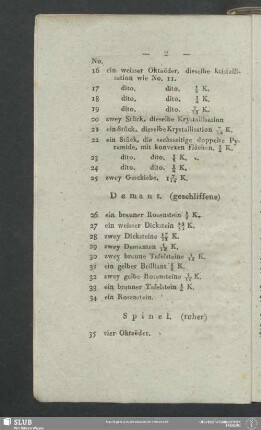 — 2 —
No.
16 ein weisser Oktaëder, dieselbe Kristalli-
sation wie No. 11.
17 dito, dito, K.
18 dito, dito, K.
19 dito, dito, K.
20 zwey Stück, dieselbe Krystallisation
21 ein Stück, dieselbe Krystallisation K.
22 ein Stück, die sechsseitige doppelte Py-
ramide, mit konvexen Flächen, K.
23 dito, dito, K.
24 dito, dito, K.
25 zwey Geschiebe, K.
Demant, (geschliffene)
26 ein brauner Rosenstein K.
27 ein weisser Dickstein K.
28 zwey Dicksteine K.
29 zwey Demanten K.
30 zwey braune Tafelsteine K.
31 ein gelber Brillant K.
32 zwey gelbe Rosensteine K.
33 ein brauner Tafelstein K.
34 ein Rosenstein.
Spinel, (roher)
35 vier Oktaëder.
SLUB